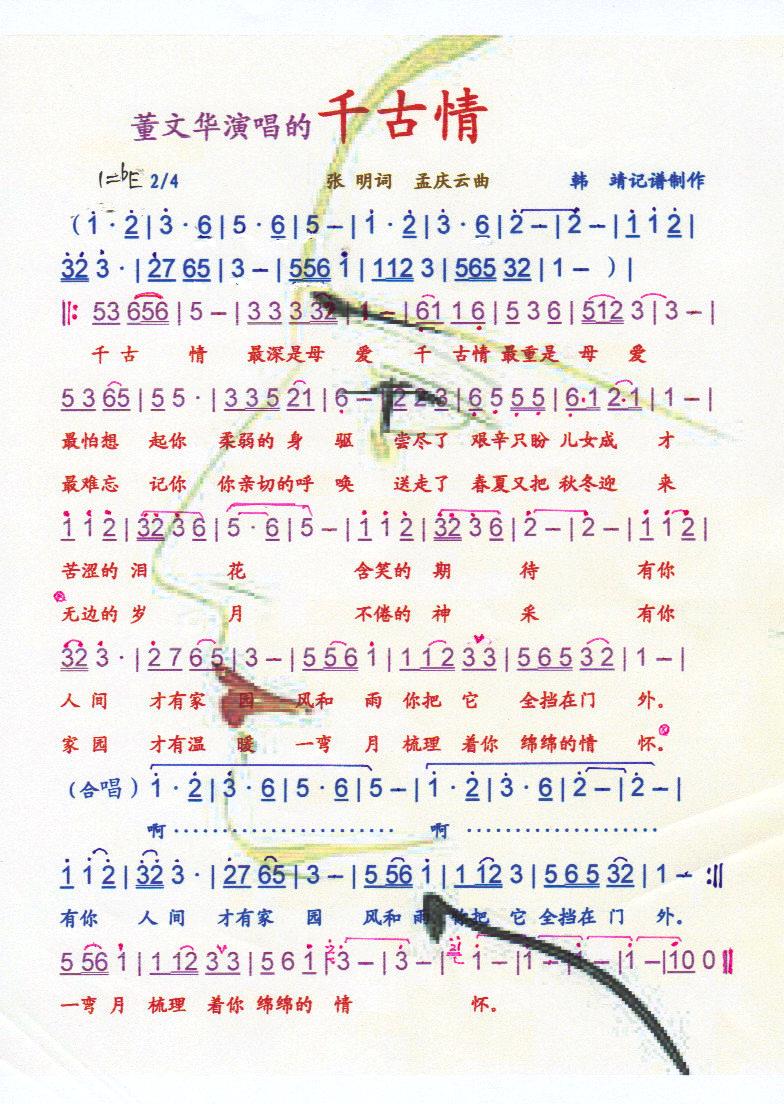 董文华演唱的千古情
1=bE 2/4 张 明词 孟庆云曲 韩 靖记谱制作
(1 · 2 | 3 · 6 | 5 · 6 | 5 – | 1 · 2 | 3 · 6 | 2 – | 2 – | 1 1 2 |
32 3 · | 27 65 | 3 – | 556 1 | 112 3 | 565 32 | 1 – ) |
‖: 53 656 | 5 – | 3 3 3 32 | 1 – | 61 1 6 | 5 3 6 | 512 3 | 3 – |
千 古 情 最深是母 爱 千 古情 最重是 母 爱
5 3 65 | 5 5 · | 3 3 5 21 | 6 – | 2 2 3 | 6 5 5 5 | 6 1 2 1 | 1 – |
最怕想 起你 柔弱的 身 驱 尝尽了 艰辛只盼 儿女成 才
最难忘 记你 你亲切的呼 唤 送走了 春夏又把 秋冬迎 来
1 1 2 | 32 3 6 | 5 · 6 | 5 – | 1 1 2 | 32 3 6 | 2 – | 2 – | 1 1 2 |
苦涩的 泪 花 含笑的 期 待 有你
无边的 岁 月 不倦的 神 采 有你
32 3 · | 2 7 6 5 | 3 – | 5 5 6 1 | 1 1 2 3 3 | 5 6 5 3 2 | 1 – |
人 间 才有家 园 风和 雨 你把 它 全挡在门 外。
家 园 才有温 暖 一弯 月 梳理 着你 绵绵的情 怀。
(合唱) 1 · 2 | 3 · 6 | 5 · 6 | 5 – | 1 · 2 | 3 · 6 | 2 – | 2 – |
啊 ······················ 啊 ···················
1 1 2 | 32 3 · | 27 65 | 3 – | 5 56 1 | 1 12 3 | 5 6 5 32 | 1 – :‖
有你 人 间 才有家 园 风和 雨 你把 它 全挡在 门 外。
5 56 1 | 1 12 3 3 | 5 6 1 | 3 – | 3 – | 1 – | 1 – | 1 – | 1 – | 10 0 ‖
一弯 月 梳理 着你 绵绵的 情 怀。